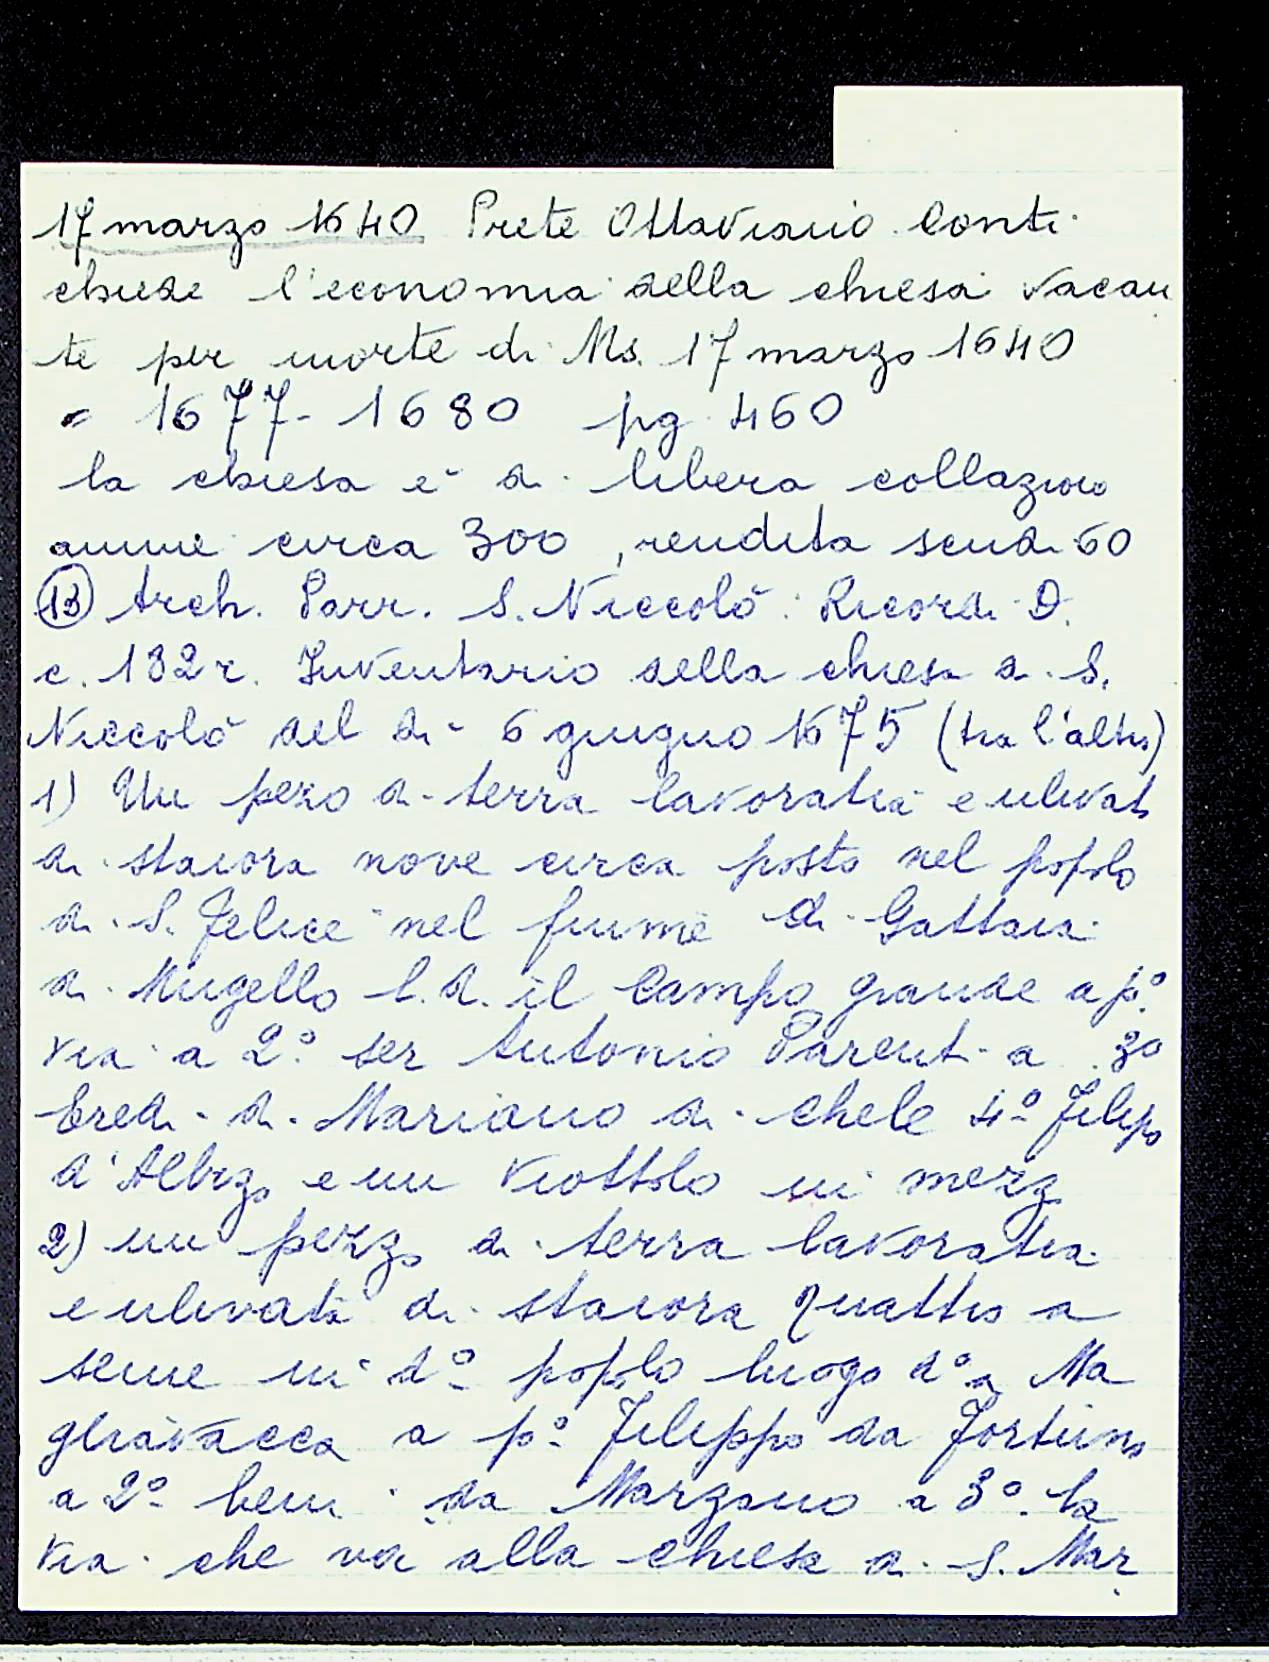 17 marzo 1640 Prete Ottaviano Conti
chiede l'economia della chiesa vacan
te per morte di Ms. 17 marzo 1640
= 1677-1680 pg 460
la chiesa è di libera collazione
anime circa 300, rendita scudi 60
(13) Arch. Parr. S. Niccolò: Ricordi D.
c. 182r. Inventario della chiesa di S.
Niccolò del dì 6 giugno 1675 (tra l'altro)
1) Un pezzo di terra lavoratia e ulivata
di staiora nove circa posto nel popolo
di S. Felice nel fiume di Gattaia
di Mugello l.d. il Campo grande a p.º
via a 2º ser Antonio Parenti a 3º
Eredi di Mariano di Chele 4º Filippo
d'Albizo e un viottolo in mezzo
2) un pezzo di terra lavoratia
e ulivata di staiora quattro a
seme in dº popolo luogo dº a Ma
gliavacca a pº Filippo da Fortuno
a 2º beni da Marzano a 3º la
via che va alla chiesa di S. Mar